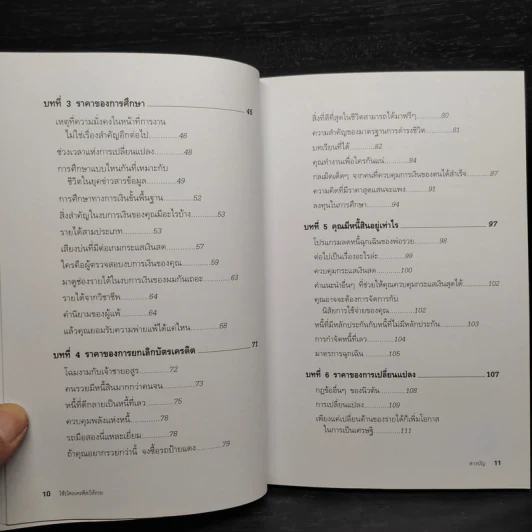 บทที่ 3 ราคาของการศึกษา 45
เหตุที่ความมั่งคงในหน้าที่การงาน
ไม่ใช่เรื่องสำคัญอีกต่อไป 46
ช่วงเวลาแห่งการเปลี่ยนแปลง 48
การศึกษาแบบไหนกันที่เหมาะกับ
ชีวิตในยุคข่าวสารข้อมูล 49
การศึกษาทางการเงินขั้นพื้นฐาน 52
สิ่งสำคัญในงบการเงินของคุณมีอะไรบ้าง 53
รายได้สามประเภท 53
เสียงบ่นที่มีต่อเกมกระแสเงินสด 57
ใครคือผู้ตรวจสอบงบการเงินของคุณ 59
มาดูช่องรายได้ในงบการเงินของผมกันเถอะ 63
รายได้จากวิชาชีพ 64
คำนิยามของผู้แพ้ 64
แล้วคุณยอมรับความพ่ายแพ้ได้แค่ไหน 68
บทที่ 4 ราคาของการยกเลิกบัตรเครดิต 71
โฉมงามกับเจ้าชายอสูร 72
คนรวยมีหนี้สินมากกว่าคนจน 73
หนี้ที่ดีกลายเป็นหนี้ที่เลว 75
ควบคุมพลังแห่งหนี้ 78
รถมือสองนี่แหละเยี่ยม 78
ถ้าคุณอยากรวยกว่านี้ จงซื้อรถป้ายแดง 79
10
สิ่งที่ดีที่สุดในชีวิตสามารถได้มาฟรีๆ 80
ความสำคัญของมาตรฐานการดำรงชีวิต 81
บทเรียนที่ได้ 82
คุณทำงานเพื่อใครกันแน่ 84
กลเม็ดเด็ดๆ จากคนที่ควบคุมการเงินของตนได้สำเร็จ 87
ความคิดที่มีราคาสุดแสนจะแพง 91
ลงทุนในการศึกษา 94
บทที่ 5 คุณมีหนี้สินอยู่เท่าไร 97
โปรแกรมลดหนี้ฉุกเฉินของพ่อรวย 98
ต่อไปเป็นเรื่องอะไรล่ะ 99
ควบคุมกระแสเงินสด 100
คำแนะนำอื่นๆ ที่ช่วยให้คุณควบคุมกระแสเงินสุดได้ 102
คุณอาจจะต้องการจัดการกับ
นิสัยการใช้จ่ายของคุณ 102
หนี้ที่มีหลักประกันกับหนี้ที่ไม่มีหลักประกัน 103
การกำจัดหนี้ที่เลว 104
มาตรการฉุกเฉิน 105
บทที่ 6 ราคาของการเปลี่ยนแปลง 107
กฎข้ออื่นๆ ของนิวตัน 108
การเปลี่ยนแปลง 109
เพียงแค่เปลี่ยนด้านของรายได้ก็เพิ่มโอกาส
ในการเป็นเศรษฐี 111
สารบัญ 11